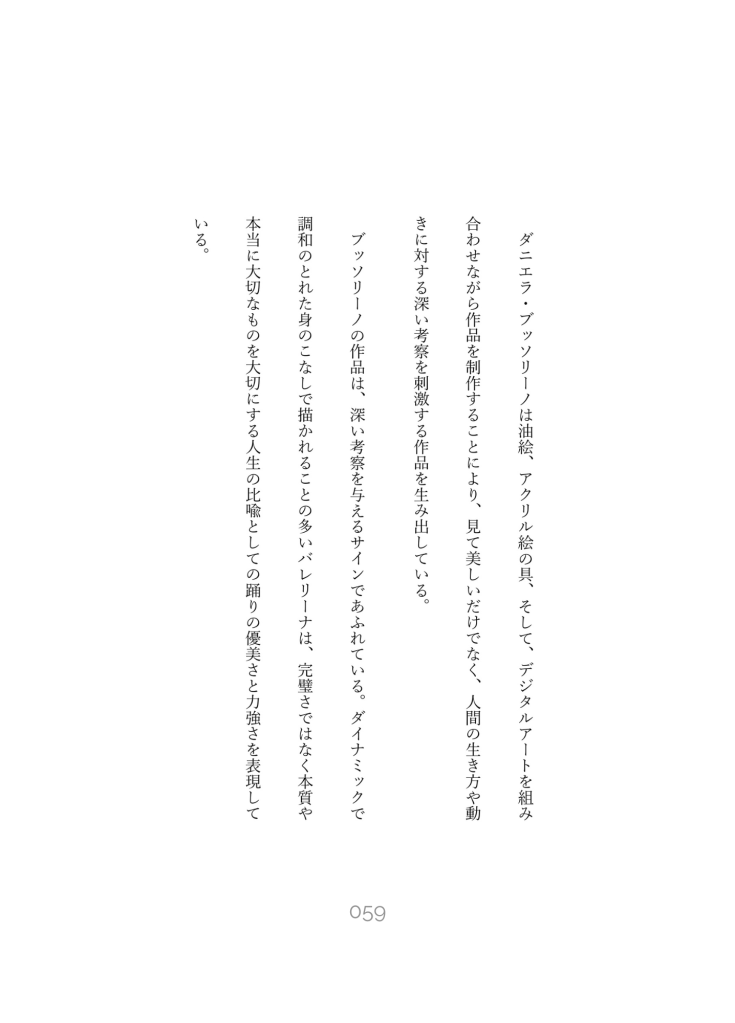 ダニエラ・ブッソリーノは油絵、アクリル絵の具、そして、デジタルアートを組み
合わせながら作品を制作することにより、見て美しいだけでなく、人間の生き方や動
きに対する深い考察を刺激する作品を生み出している。
ブッソリーノの作品は、深い考察を与えるサインであふれている。ダイナミックで
調和のとれた身のこなしで描かれることの多いバレリーナは、完璧さではなく本質や
本当に大切なものを大切にする人生の比喩としての踊りの優美さと力強さを表現して
いる。
059